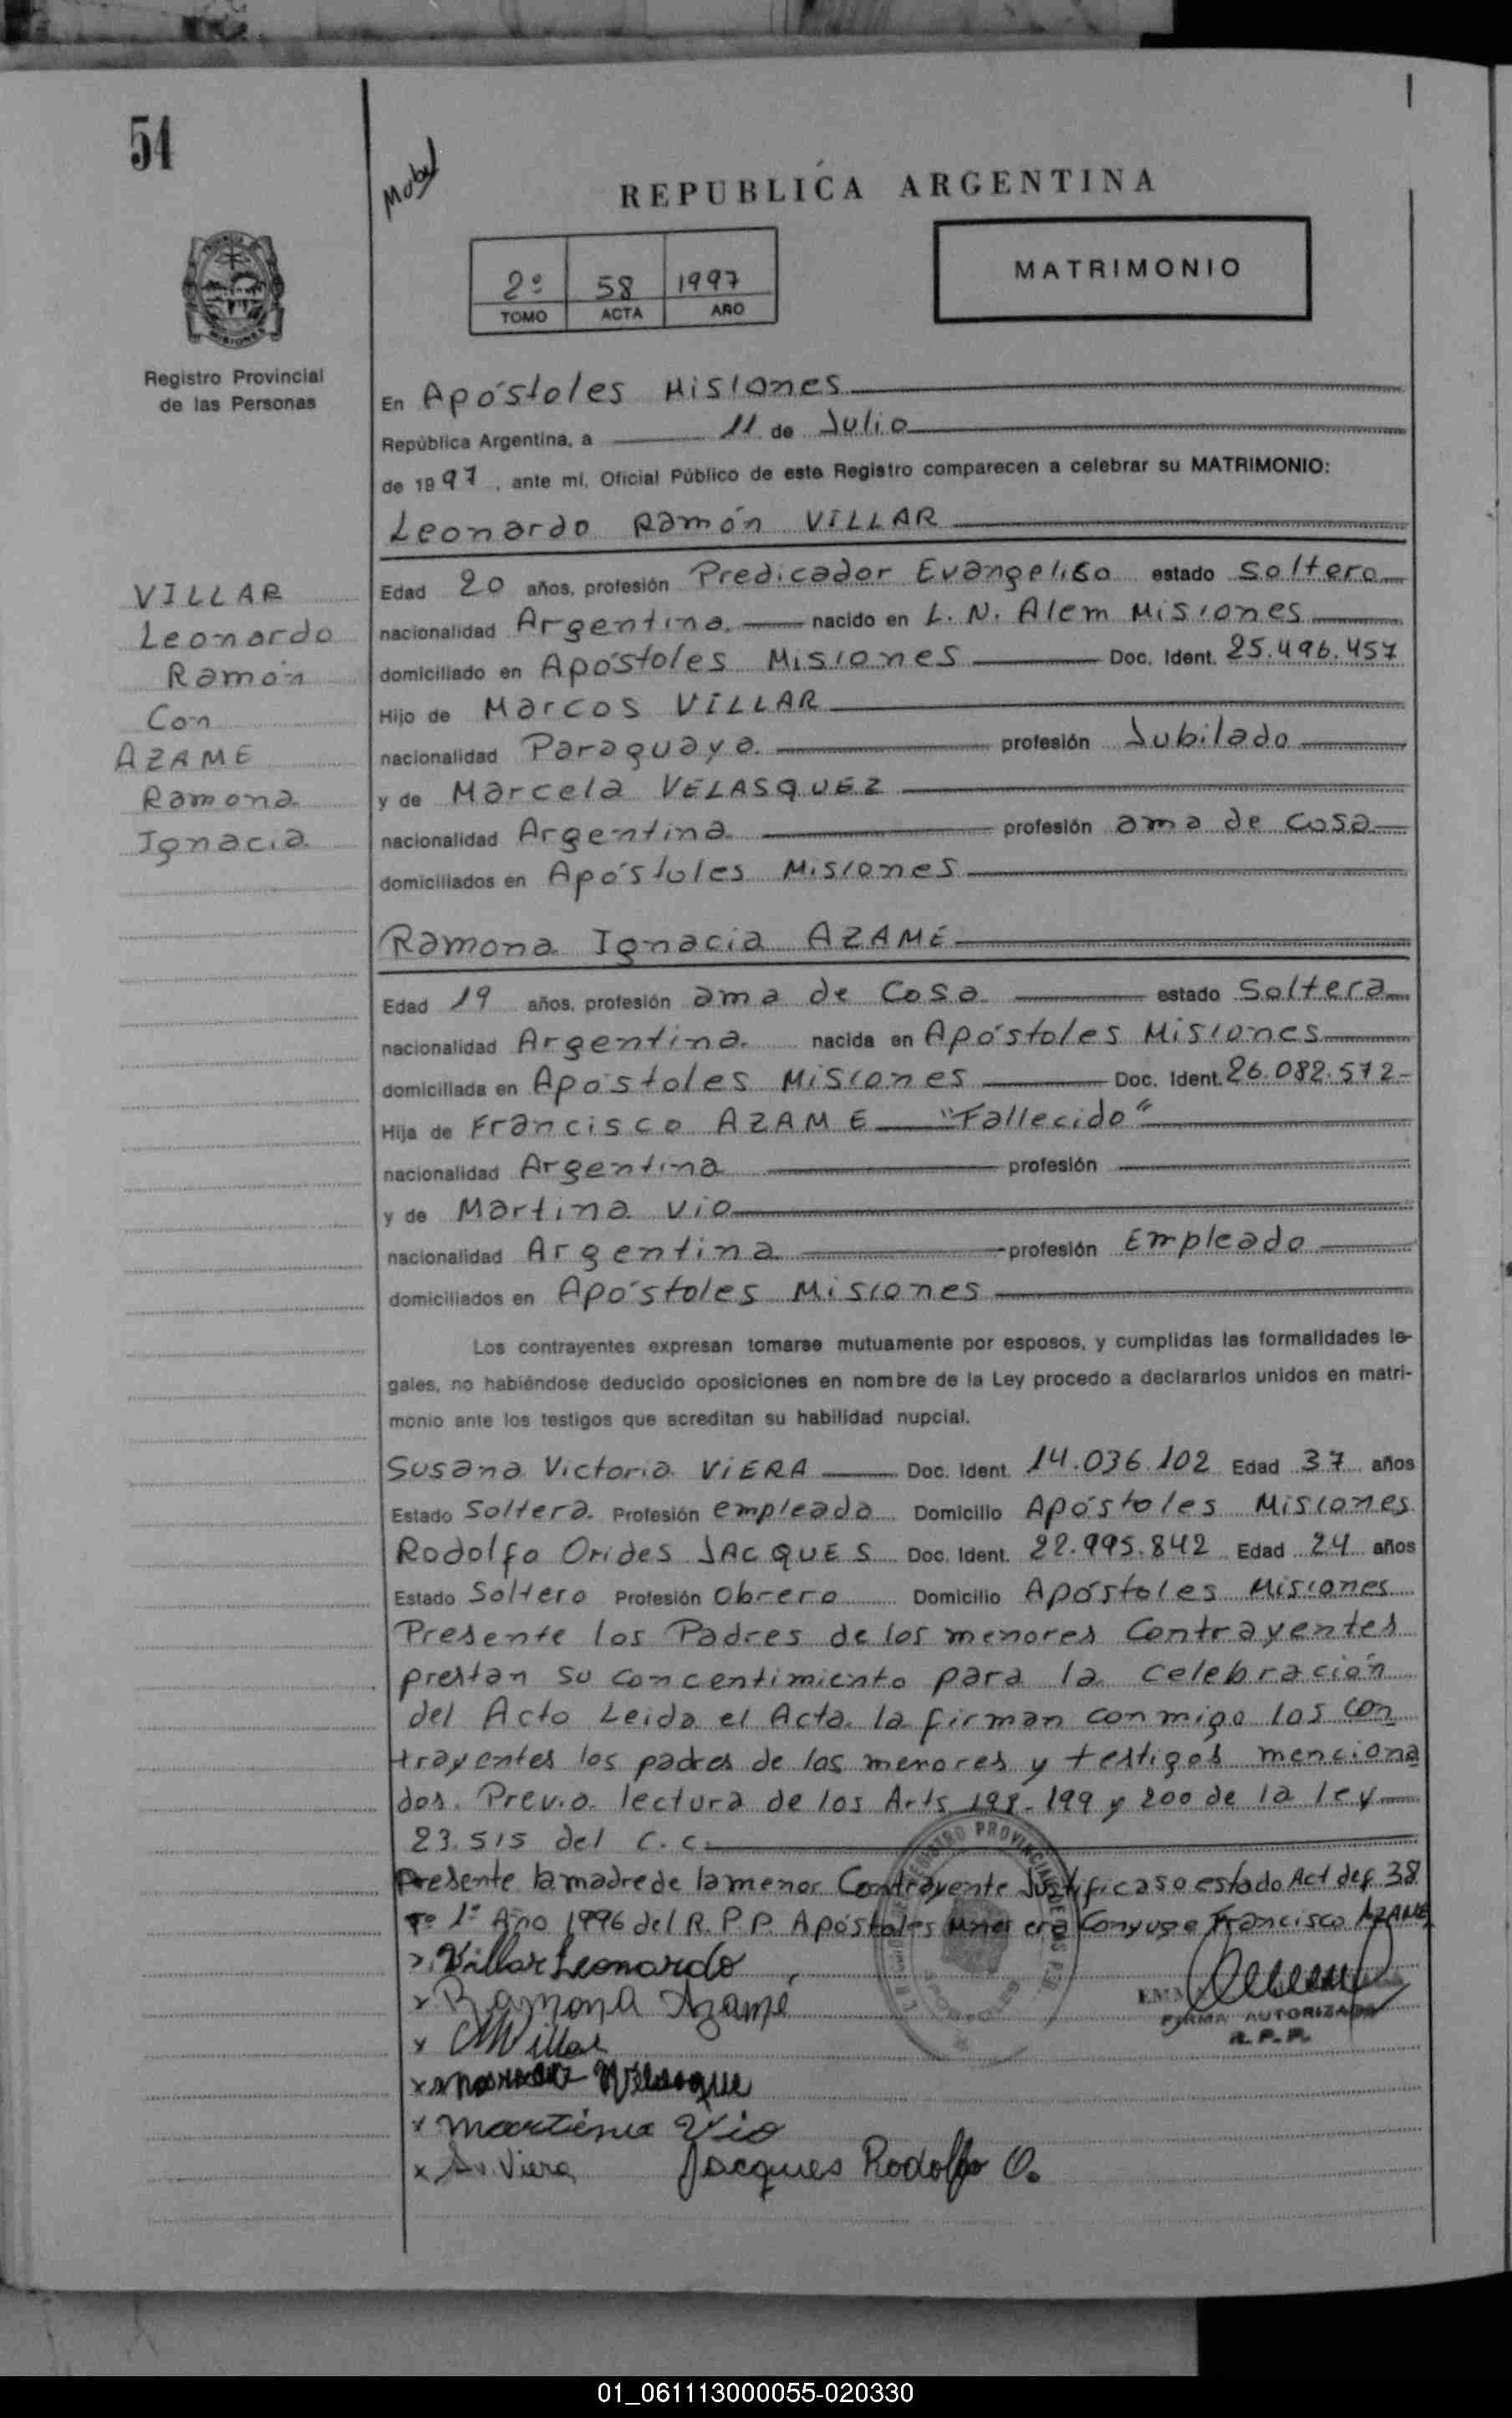 54
Mabel
REPUBLICA ARGENTINA
2º 58 1997
TOMO ACTA AÑO
MATRIMONIO
Registro Provincial
de las Personas
En Apóstoles Misiones
República Argentina, a 11 de Julio
de 1997, ante mí, Oficial Público de este Registro comparecen a celebrar su MATRIMONIO:
Leonardo Ramón VILLAR
VILLAR
Leonardo
Ramón
Con
AZAME
Ramona
Ignacia
Edad 20 años, profesión Predicador Evangelico estado Soltero
nacionalidad Argentina. nacido en L. N. Alem Misiones
domiciliado en Apóstoles Misiones Doc. Ident. 25.496.457
Hijo de Marcos VILLAR
nacionalidad Paraguaya profesión Jubilado
y de Marcela VELASQUEZ
nacionalidad Argentina profesión ama de casa
domiciliados en Apóstoles Misiones
Ramona Ignacia AZAME
Edad 19 años, profesión ama de Casa estado Soltera
nacionalidad Argentina. nacida en Apóstoles Misiones
domiciliada en Apostoles Misiones Doc. Ident. 26.082.572-
Hija de Francisco AZAME "Fallecido"
nacionalidad Argentina profesión
y de Martina Vio
nacionalidad Argentina profesión Empleada
domiciliados en Apóstoles Misiones
Los contrayentes expresan tomarse mutuamente por esposos, y cumplidas las formalidades le-
gales, no habiéndose deducido oposiciones en nombre de la Ley procedo a declararlos unidos en matri-
monio ante los testigos que acreditan su habilidad nupcial.
Susana Victoria VIERA Doc. Ident. 14.036.102 Edad 37 años
Estado Soltera. Profesión empleada Domicilio Apóstoles Misiones
Rodolfo Orides JACQUES Doc. Ident. 22.995.842 Edad 24 años
Estado Soltero Profesión Obrero Domicilio Apóstoles Misiones
Presente los Padres de los menores Contrayentes
prestan su concentimiento para la celebración
del Acto Leida el Acta. la firman conmigo los con
trayentes los padres de los menores y testigos menciona
dos. Previa lectura de los Arts 198-199 y 200 de la ley
23.515 del C.C.
Presente la madre de la menor Contrayente Justifica so estado Act def 38
Tº 1º Año 1996 del R.P.P. Apóstoles era Conyuge Francisco AZAME
Villar Leonardo
x Ramona Azamé
x Villar
x Velasque
x Martina Vio
x S.V. Viera Jacques Rodolfo O.
FIRMA AUTORIZADA
R. P. P.
01_061113000055-020330